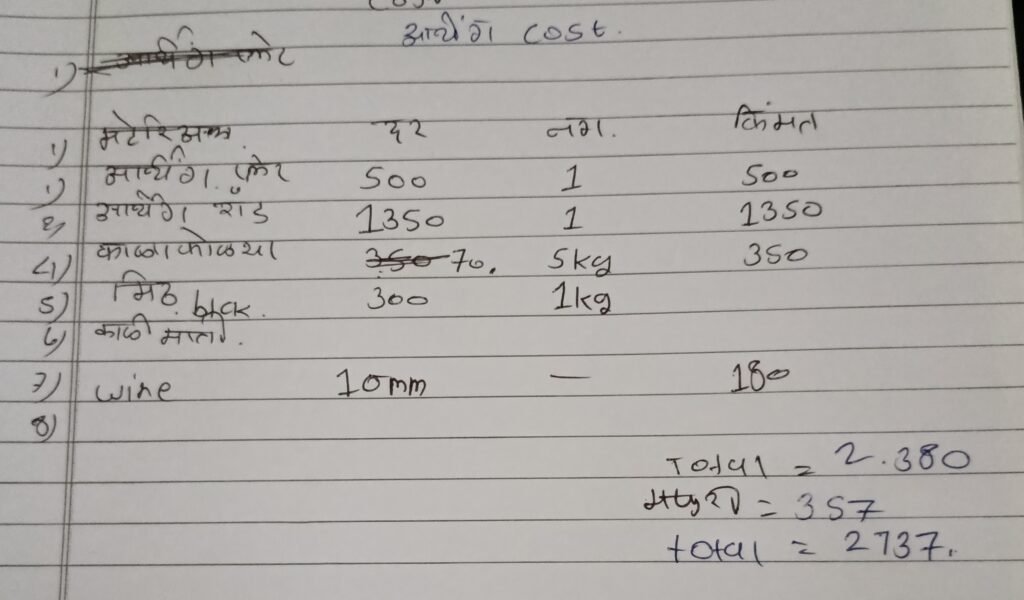 आर्थींग cost.
1)
1) मटेरिअल. दर नग. किंमत
1) आर्थींग प्लेट 500 1 500
2) आर्थींग रॉड 1350 1 1350
4) काळा कोळसा 70. 5kg 350
5) मिठ. 300 1kg
6) काळी माती.
7) wire 10mm — 180
8)
Total = 2.380
मजुरी = 357
total = 2737.